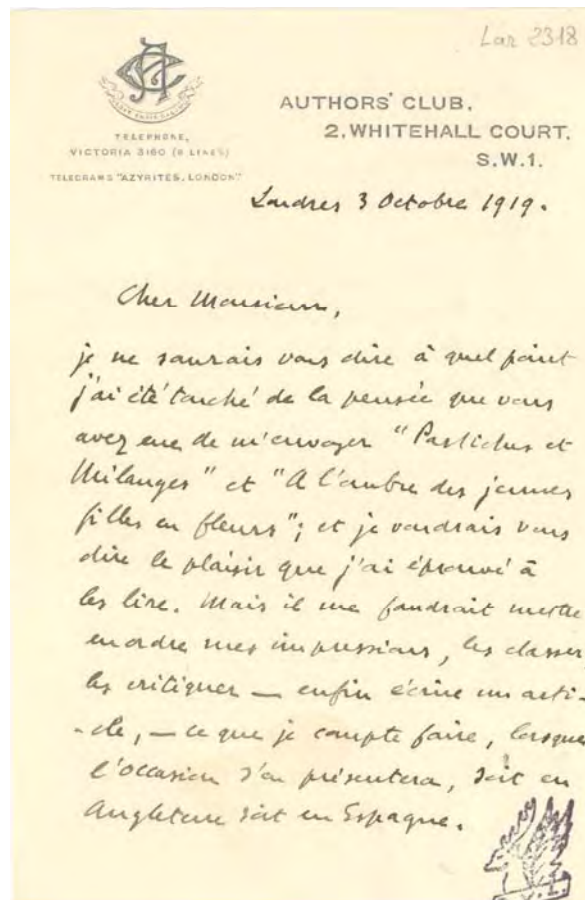 Lar 2318
AUTHORS' CLUB,
2, WHITEHALL COURT.
S.W.1.
TELEPHONE,
VICTORIA 3160 (8 LINES)
TELEGRAMS "AZYRITES, LONDON"
Londres 3 Octobre 1919.
Cher Monsieur,
je ne saurais vous dire à quel point
j'ai été touché de la pensée que vous
avez eue de m'envoyer "Pastiches et
Mélanges" et "A l'ombre des jeunes
filles en fleurs"; et je voudrais vous
dire le plaisir que j'ai éprouvé à
les lire. Mais il me faudrait mettre
en ordre mes impressions, les classer
les critiquer — enfin écrire un arti-
-cle, — ce que je compte faire, lorsque
l'occasion s'en présentera, soit en
Angleterre soit en Espagne.